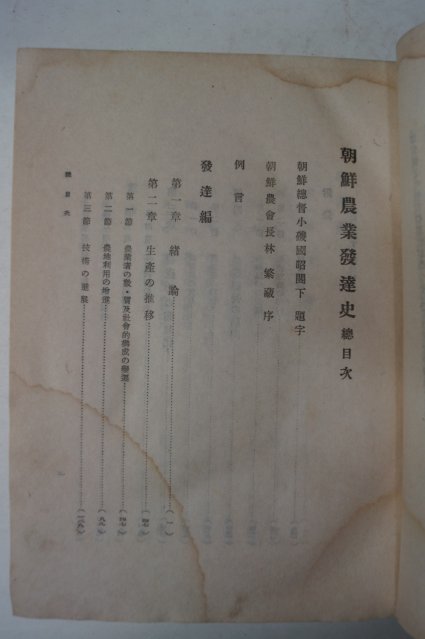 朝鮮農業發達史 總目次
朝鮮總督小磯國昭閣下 題字
朝鮮農會長林 繁藏 序
例言
發達編
第一章 緖論……(一)
第二章 生產の推移……(四七)
第一節 農業者の數・質及社會的構成の變遷……(四七)
第二節 農地利用の增進……(九八)
第三節 技術の進展
總目次